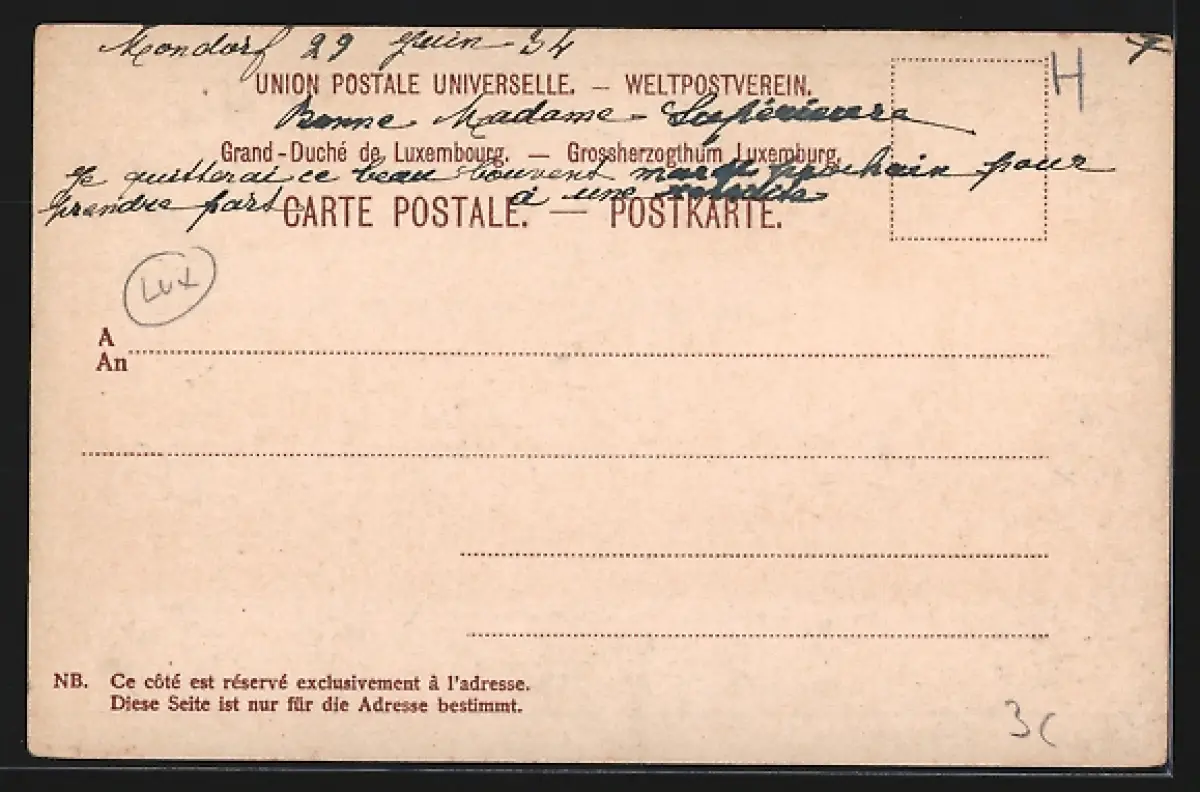 Mondorf 29 Juin 34
H
UNION POSTALE UNIVERSELLE. — WELTPOSTVEREIN.
Bonne Madame Supérieure
Grand-Duché de Luxembourg. — Grossherzogthum Luxemburg.
Je quitterai ce beau couvent mardi prochain pour
prendre part à une
CARTE POSTALE. — POSTKARTE.
LUX
A
An
NB. Ce côté est réservé exclusivement à l'adresse.
Diese Seite ist nur für die Adresse bestimmt.
3C